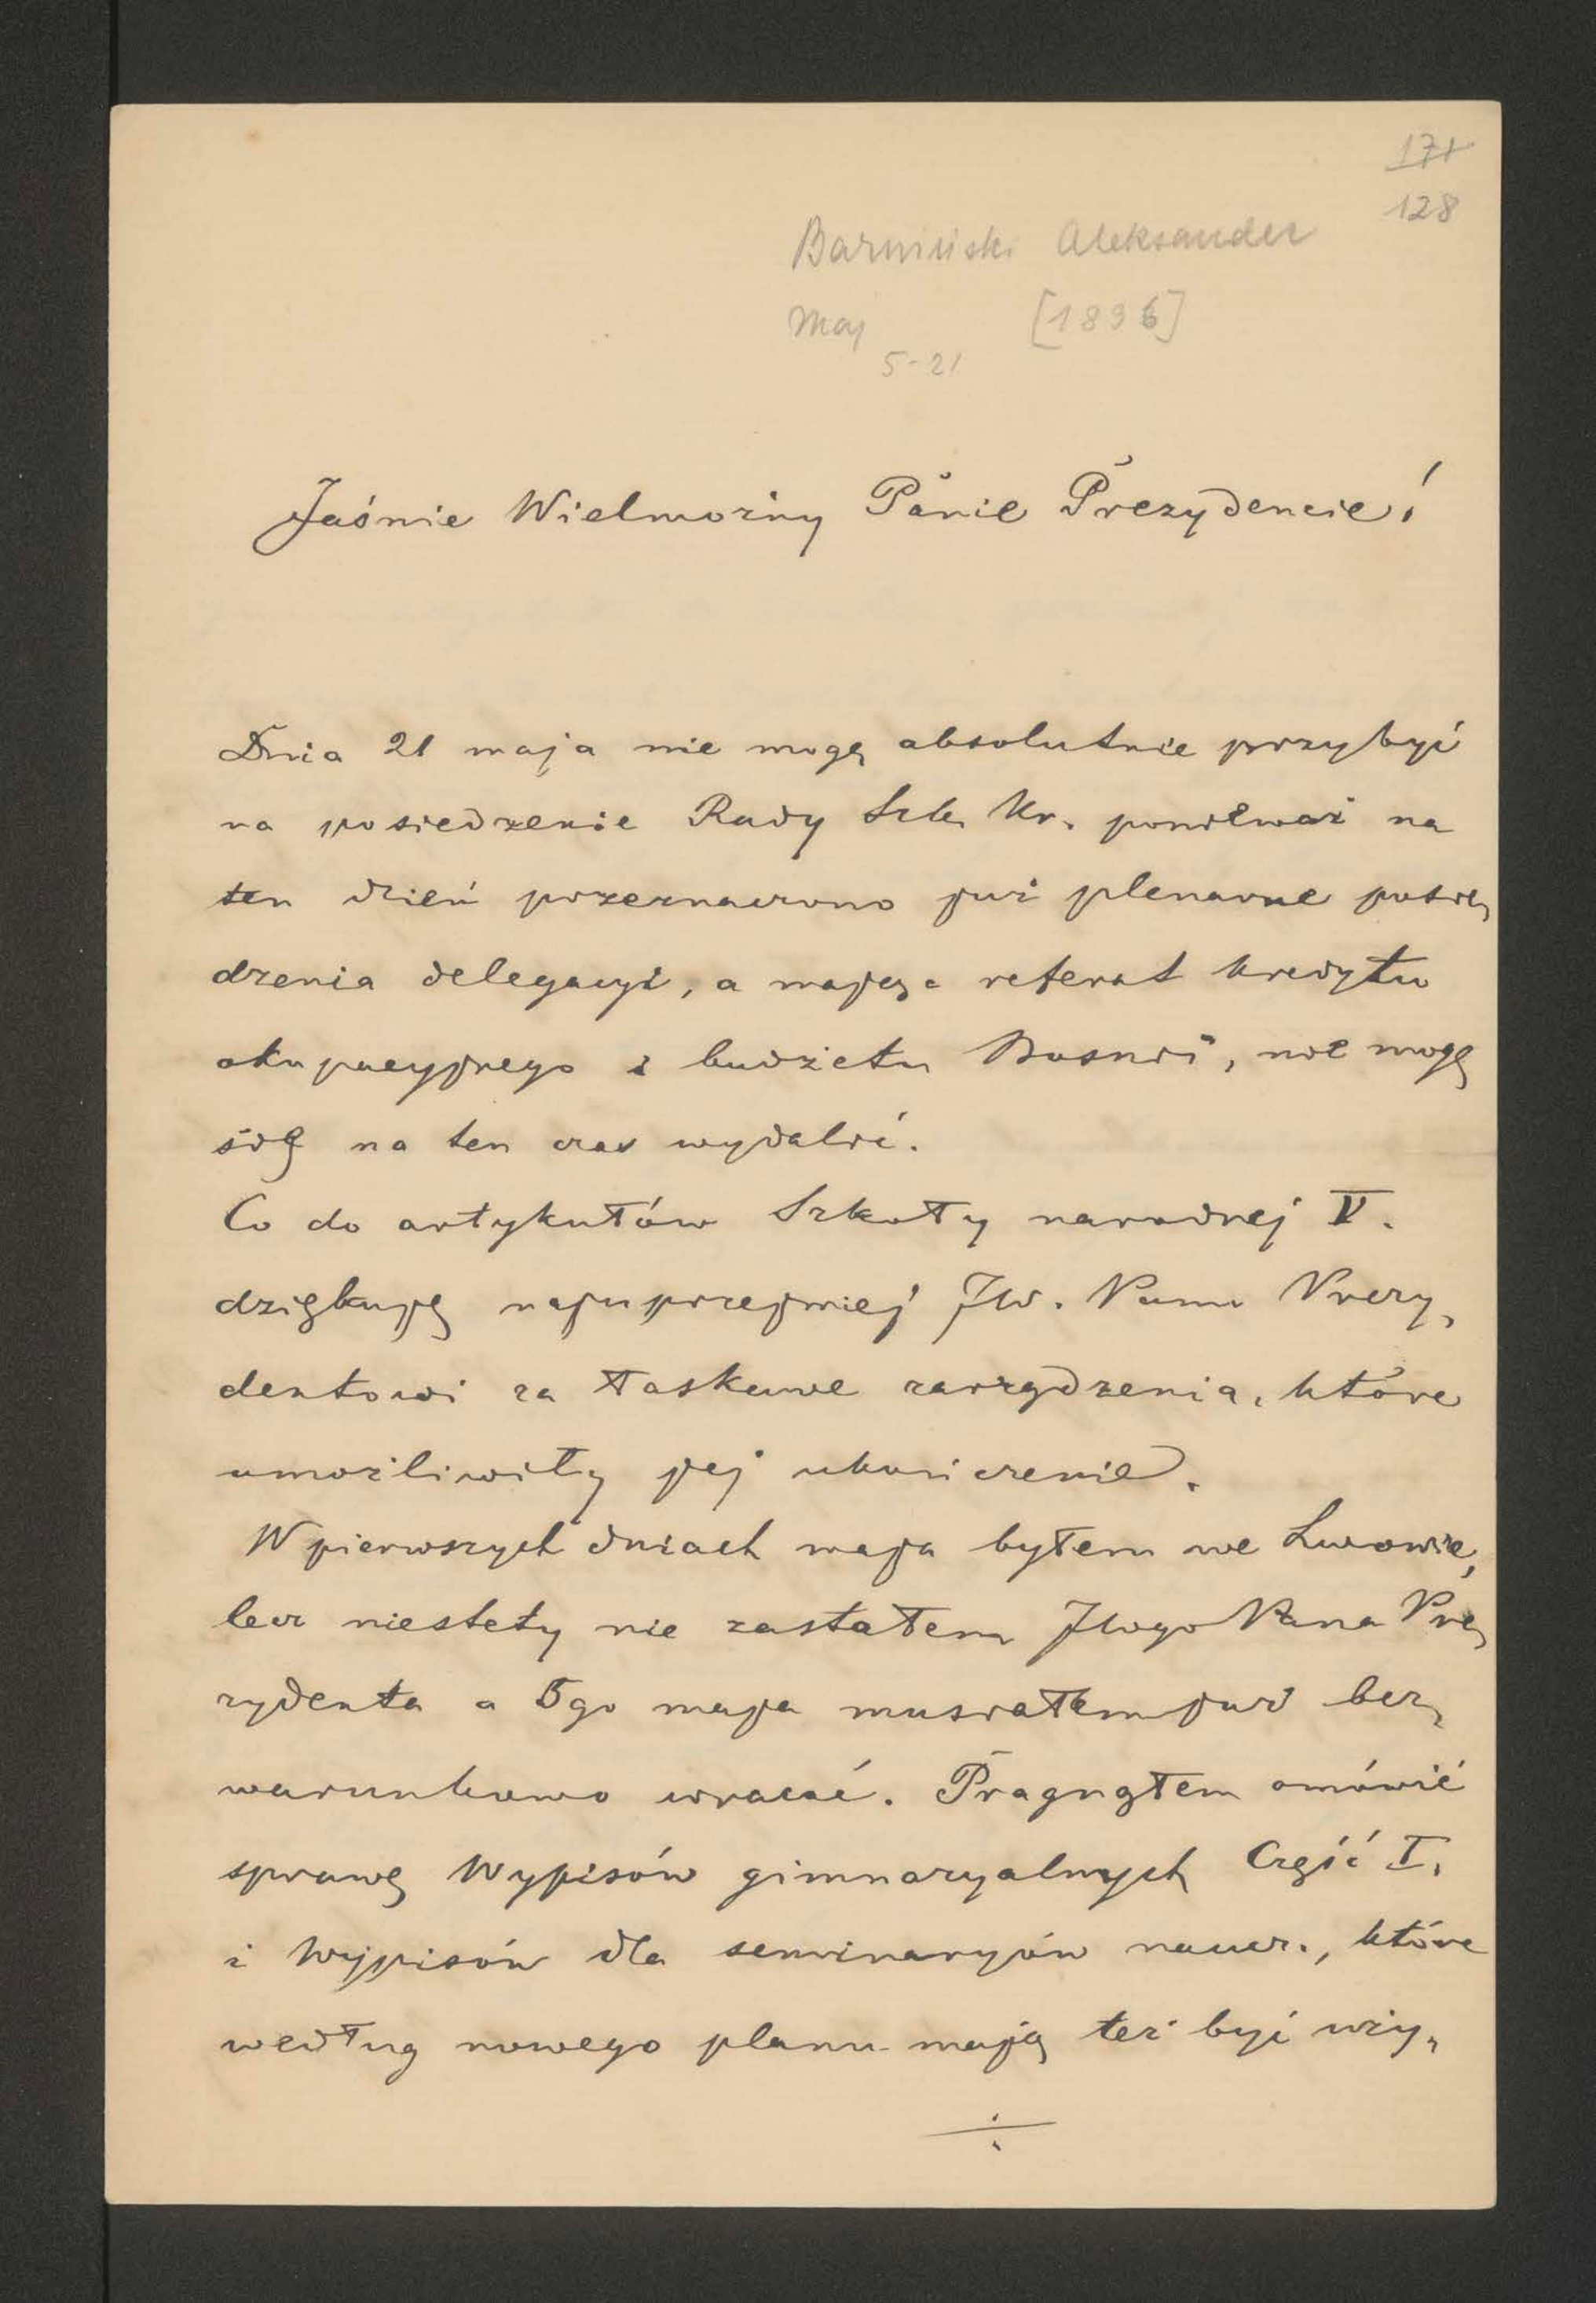 171
128
Barwiński Aleksander
Maj [1896]
5-21
Jaśnie Wielmożny Panie Prezydencie!
Dnia 21 maja nie mogę absolutnie przybyć
na posiedzenie Rady Szk. Kr. ponieważ na
ten dzień przeznaczono już plenarne posie„
dzenia delegacyi, a mając referat kredytu
okupacyjnego i budżetu Bosnii, nie mogę
się na ten czas wydalić.
Co do artykułów Szkoły narodnej V.
dziękuję najuprzejmiej JW. Panu Prezy„
dentowi za łaskawe zarządzenia, które
umożliwiły jej ukończenie.
W pierwszych dniach maja byłem we Lwowie,
lecz niestety nie zastałem JWgo Pana Pre„
zydenta a 5go maja musiałem już bez„
warunkowo wracać. Pragnąłem omówić
sprawę Wypisów gimnazyalnych Część I.
i Wypisów dla seminaryów naucz., które
według nowego planu mają też być uży„